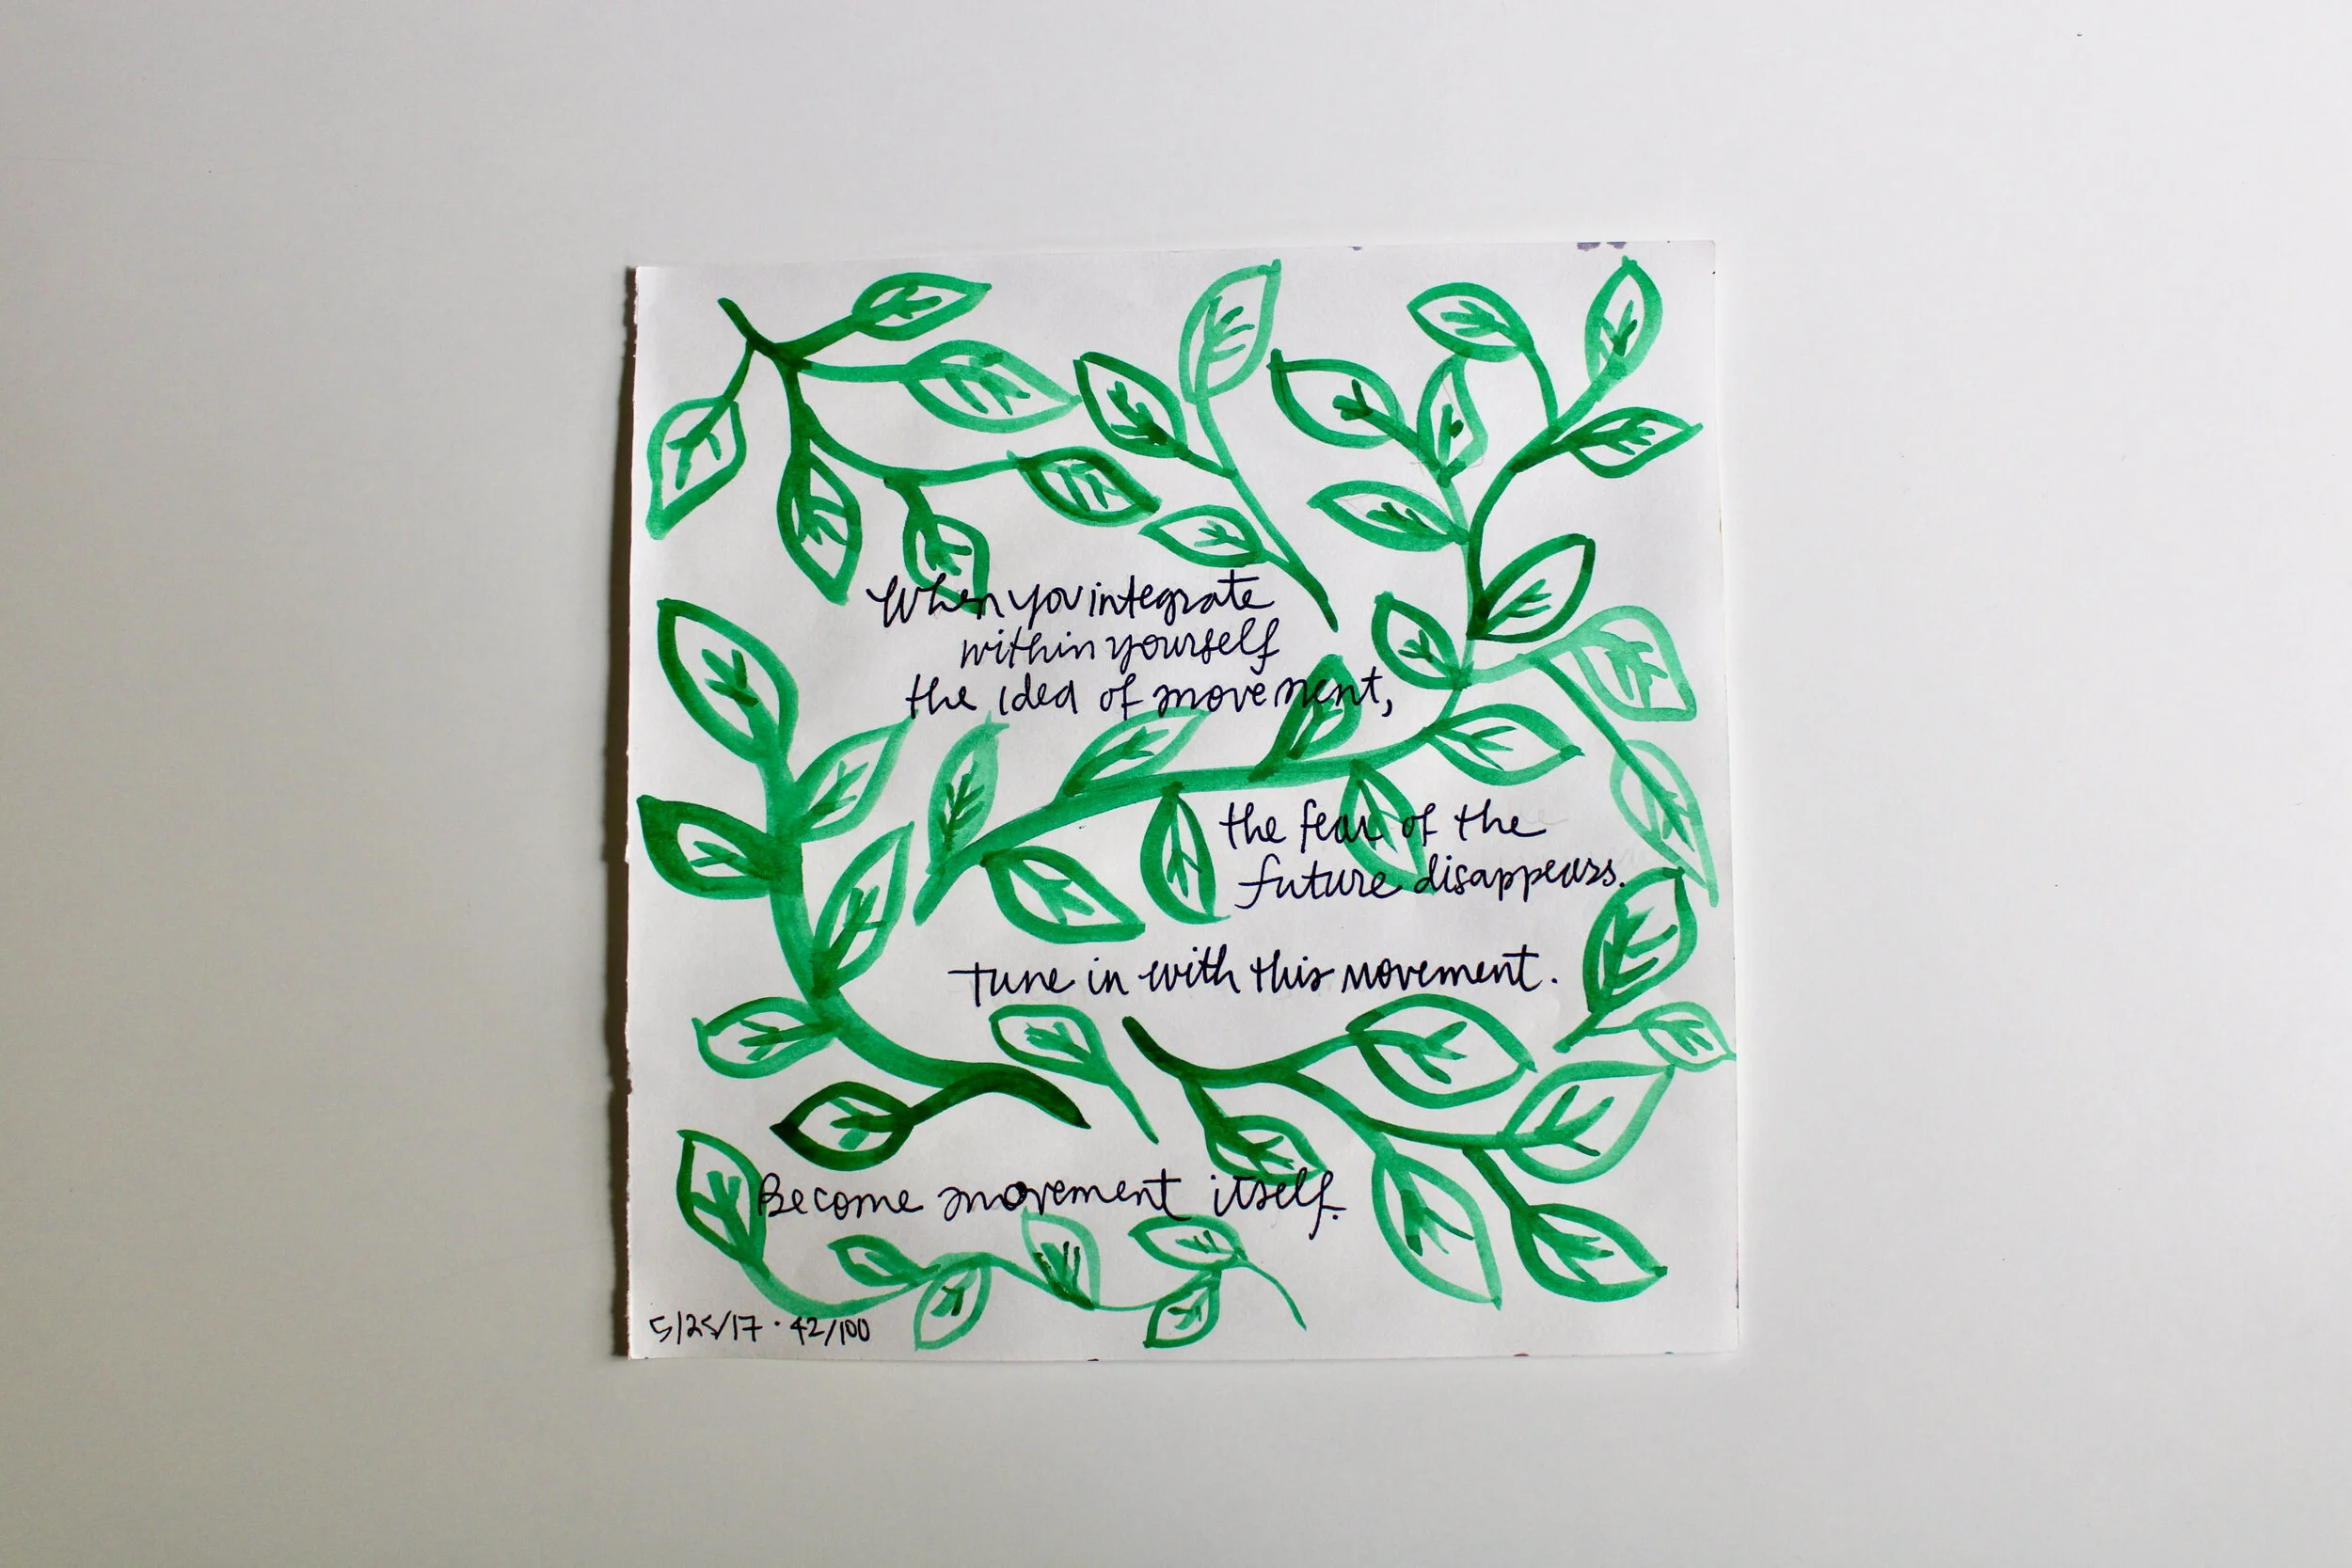 When you integrate
within yourself
the idea of movement,
the fear of the
future disappears.
Tune in with this movement.
Become movement itself.
5/25/17 · 42/100